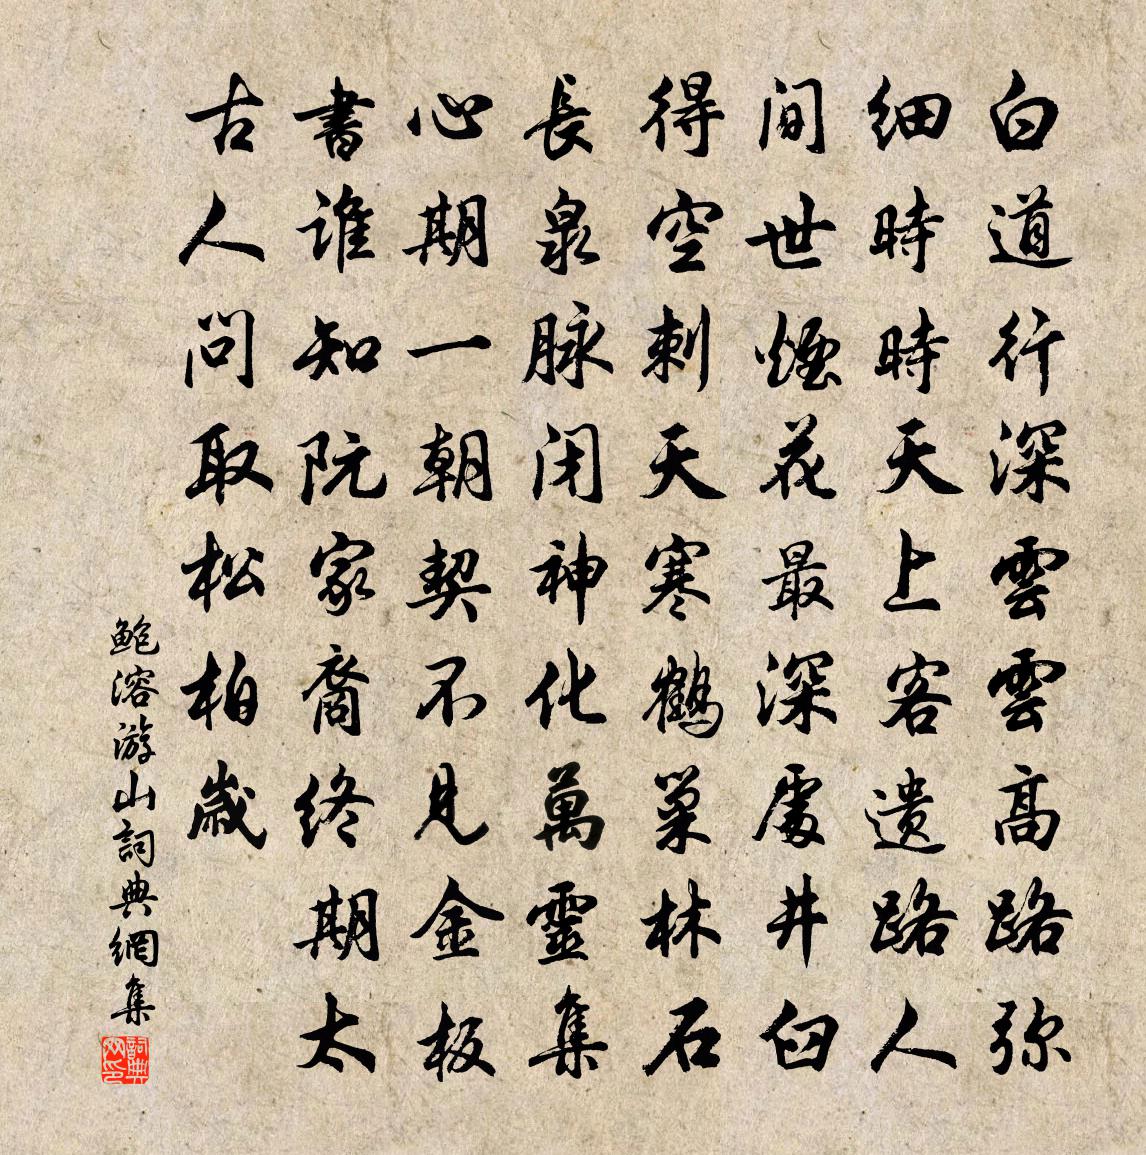 白道行深雲雲高路弥
細時時天上客遗路人
间世煙花最深處井臼
得空刺天寒鶴巢林石
長泉脉闭神化萬靈集
心期一朝契不見金板
書谁知阮家裔终期太
古人问取松柏歲
鲍溶游山詞典網集
詞典网印